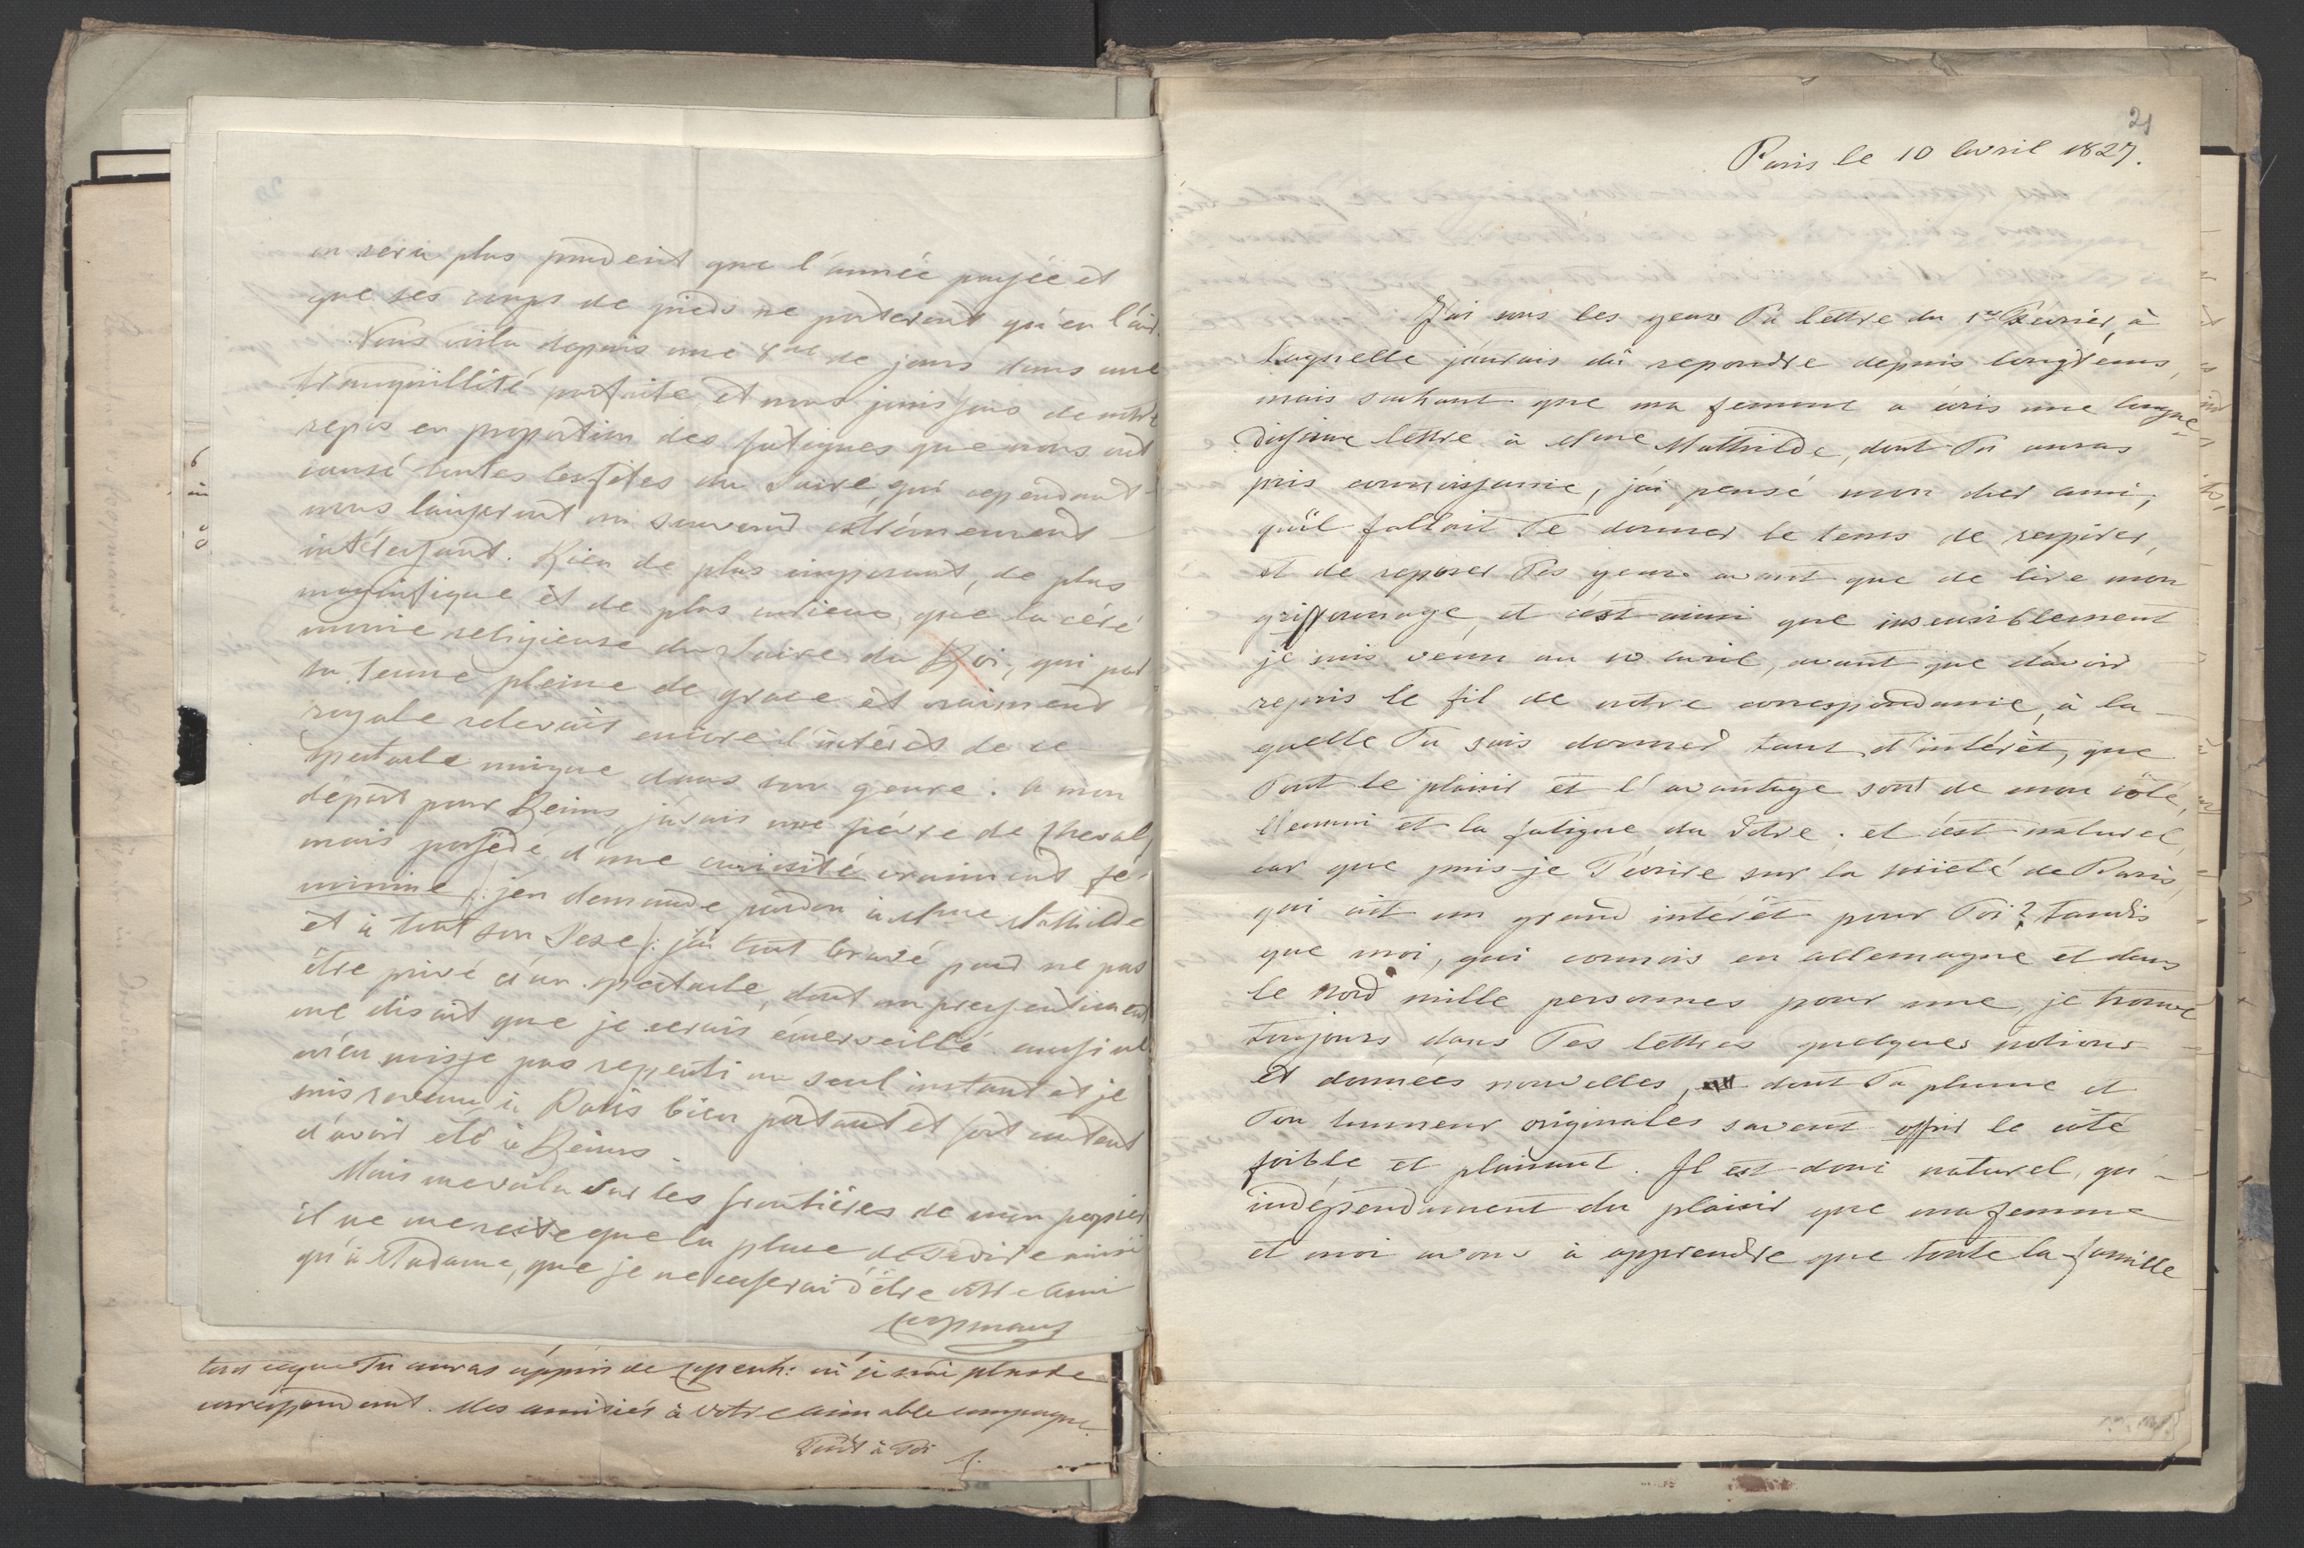 en sera plus prudent que l'année passée et
que ses coups de pieds ne porteront qu'en l'air.
Nous voila depuis une 8ne de jours dans une
tranquillité parfaite, et nous jouissons de notre
repos en proportion des fatigues que nous ont
causé toutes les fêtes du Sacre, qui cependant
nous laisseront un souvenir extrêmement
intéressant. Rien de plus imposant, de plus
magnifique et de plus curieux, que la céré
monie religieuse du Sacre du Roi, qui par
sa tenue pleine de grace et vraiment
royale relevait encore l'intérêt de ce
spectacle unique dans son genre. A mon
départ pour Reims, j'avais une fièvre de cheval,
mais possédé d'une curiosité vraiment fé-
minine /: j'en demande pardon à Mme Mathilde
et à tout son Sexe :/ j'ai tout bravé pour ne pas
être privé d'un spectacle, dont un pressentiment
me disait que je serais émerveillé. aussi ne
m'en suis je pas repenti un seul instant et je
suis revenu à Paris bien portant et fort content
d'avoir été à Reims.
Mais me voila sur les frontières de mon papier
il ne me reste que la place de Te dire ainsi
qu'à Madame, que je ne cesserai d'être votre ami
tout ce que Tu auras appris de où je n'ai plus de
correspondant. Mes amitiés à votre aimable compagne.
Tout à Toi
21
Paris le 10 Avril 1827.
J'ai sous les yeux Ta lettre du 1er Février, à
laquelle j'aurais dû repondre depuis longtems,
mais sachant que ma femme a écris une longue-
dissime lettre à Mme Mathilde, dont Tu auras
pris connaissance, j'ai pensé mon cher ami,
qu'il fallait Te donner le tems de respirer,
et de reposer Tes yeux avant que de lire mon
griffonnage, et c'est ainsi que insensiblement
je suis venu au 10 avril, avant que d'avoir
repris le fil de notre correspondance, à la-
quelle Tu sais donner tant d'intérêt, que
Tout le plaisir et l'avantage sont de mon côté,
l'ennui et la fatigue du Votre; et c'est naturel,
car que puis je T'écrire sur la société de Paris,
qui ait un grand intérêt pour Toi? tandis
que moi, qui connois en allemagne et dans
le Nord mille personnes pour une, je trouve
toujours dans Tes lettres quelques notions
et données nouvelles, dont Ta plume et
Ton humeur originales savent offrir le côté
foible et plaisant. Il est donc naturel, qu'-
indépendament du plaisir que ma femme
et moi avons à apprendre que toute la famille